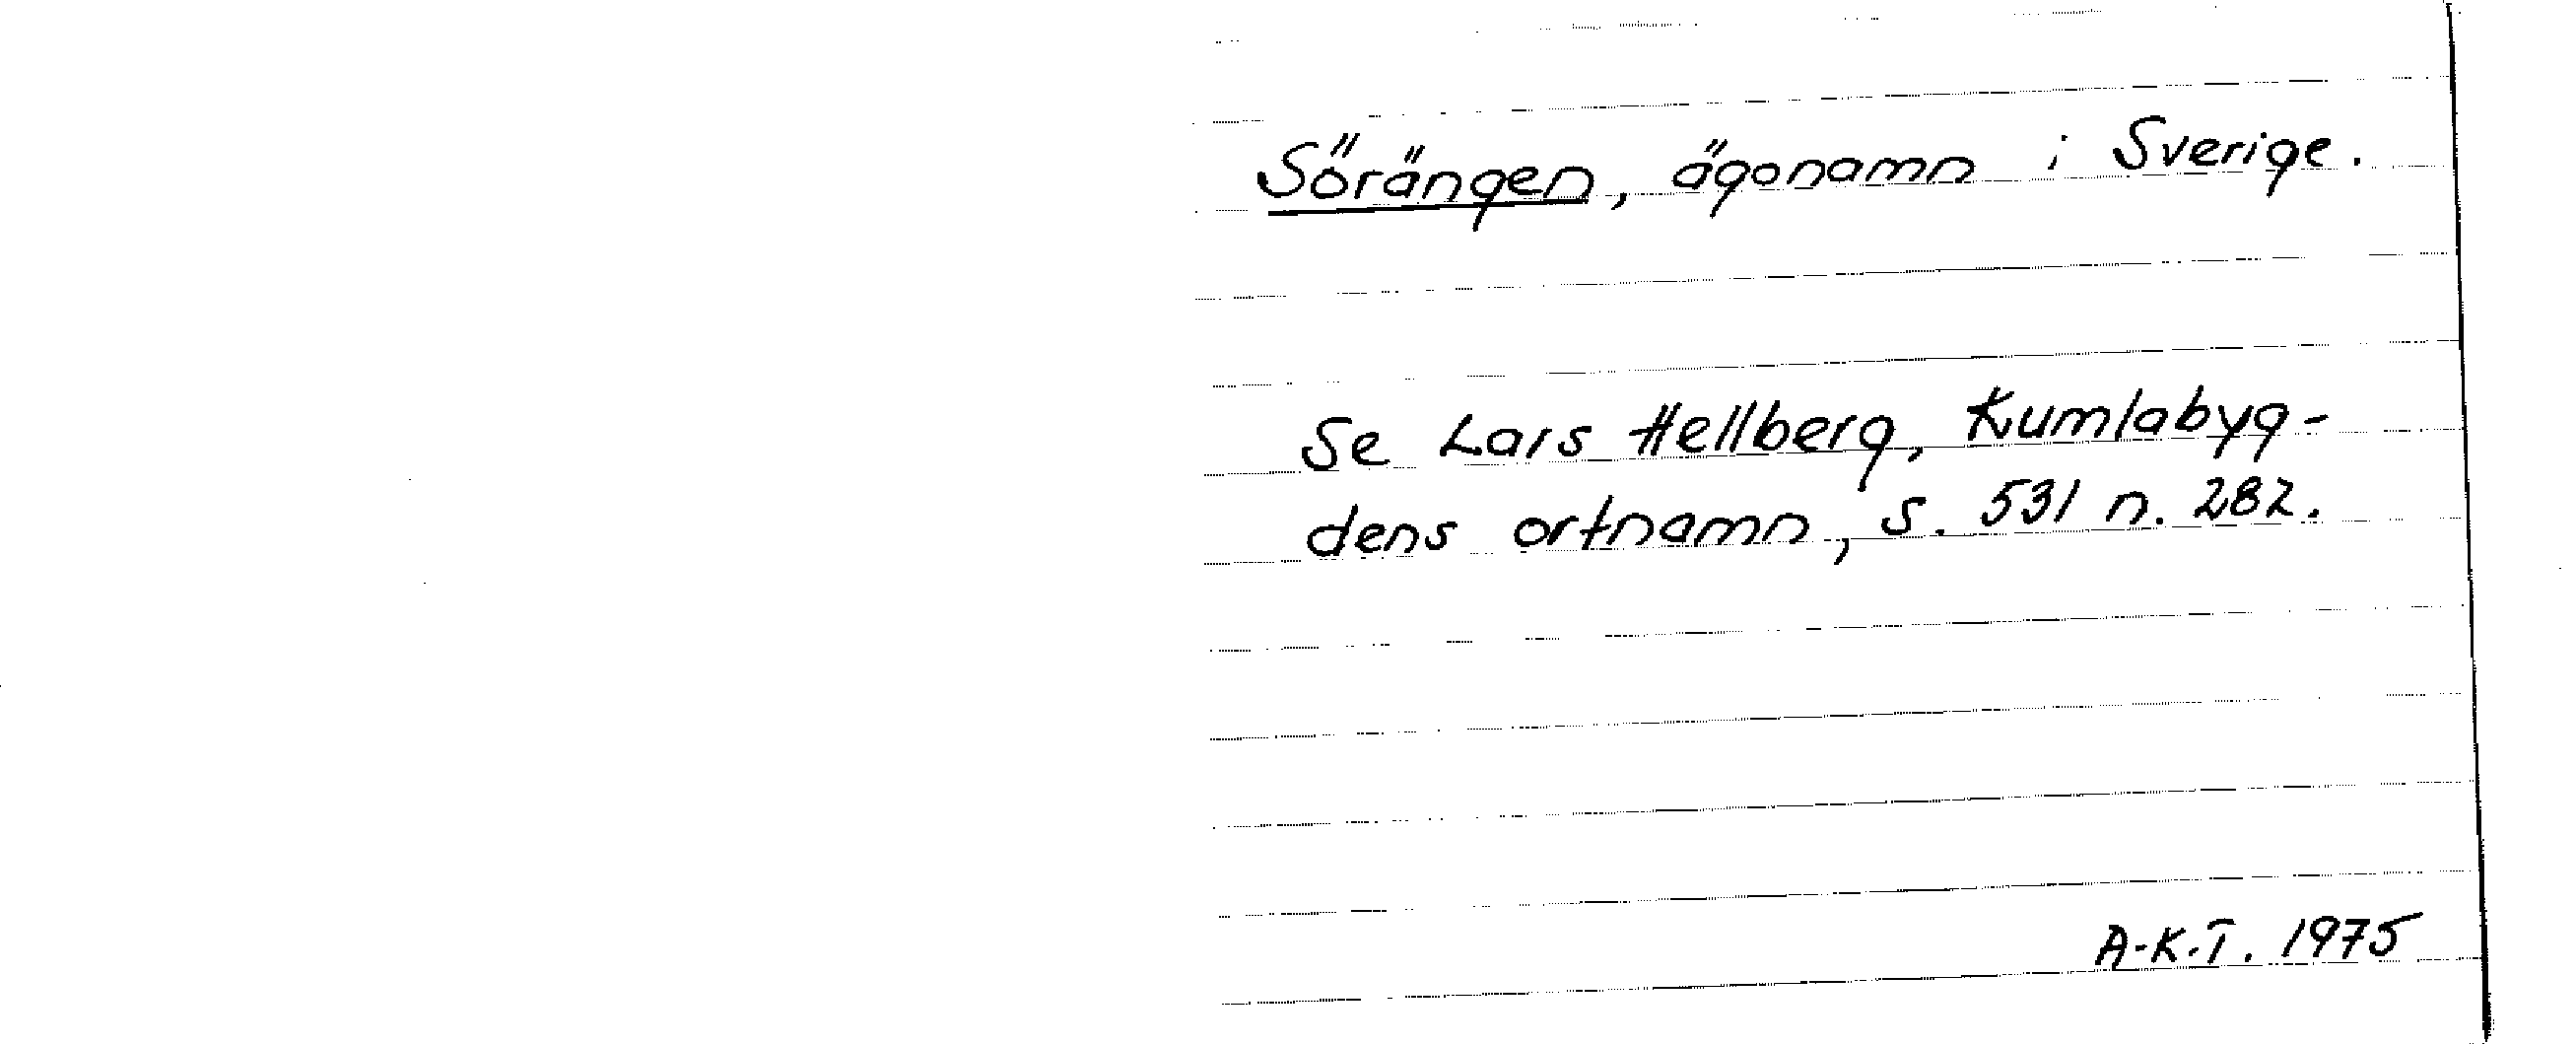 Sörängen, ägonamn i Sverige.
Se Lars Hellberg, Kumlabyg-
dens ortnamn, s. 531 n. 282.
A-K.T. 1975